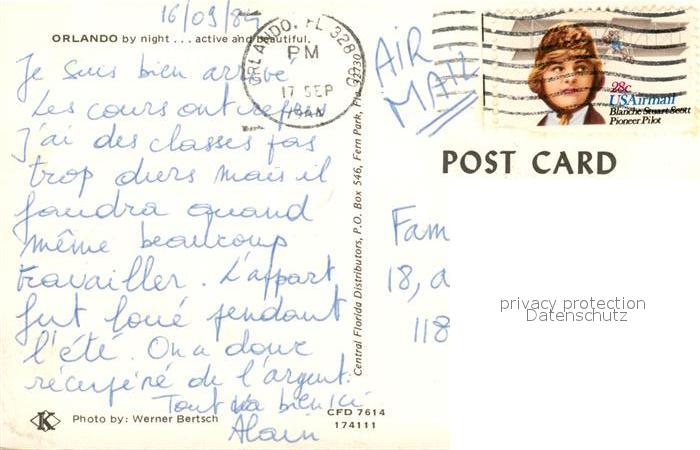 16/09/84
ORLANDO by night . . . active and beautiful.
Je suis bien arrivé
Les cours ont repris
J'ai des classes pas
trop durs mais il
faudra quand
même beaucoup
travailler. L'appart
fut loué pendant
l'été. On a donc
récupéré de l'argent.
Tout va bien ici
Alain
Photo by: Werner Bertsch
CFD 7614
174111
K
Central Florida Distributors, P.O. Box 546, Fern Park, Fla. 32730
ORLANDO, FL 328
PM
17 SEP
AIR
MAIL
28c
USAirmail
Blanche Stuart Scott
Pioneer Pilot
POST CARD
Fam
18, a
118
privacy protection
Datenschutz